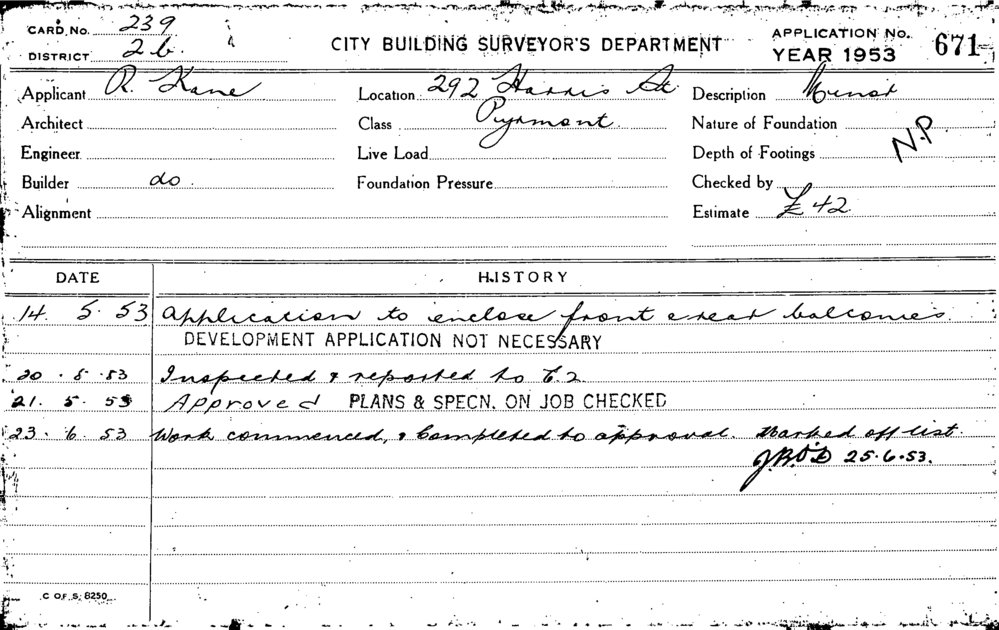 CARD. No. 239
DISTRICT 2b.
CITY BUILDING SURVEYOR'S DEPARTMENT
APPLICATION No. 671
YEAR 1953
Applicant R. Kane
Location 292 Harris St.
Description Minor
Architect
Class Pyrmont.
Nature of Foundation
Engineer
Live Load
Depth of Footings
N.P
Builder do.
Foundation Pressure
Checked by
Alignment
Estimate £42
DATE HISTORY
14. 5. 53 Application to enclose front & rear balconies.
DEVELOPMENT APPLICATION NOT NECESSARY
20. 5. 53 Inspected & reported to C.2
21. 5. 53 Approved PLANS & SPECN. ON JOB CHECKED
23. 6. 53 Work commenced, & Completed to approval. Marked off list.
J.B.O'D 25.6.53.
C OF S. 8250